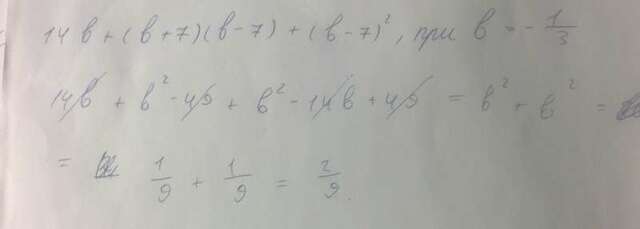 14в + (в+7)(в-7) + (в-7)², при в = -1/3
14в + в² - 49 + в² - 14в + 49 = в² + в² =
= 1/9 + 1/9 = 2/9.